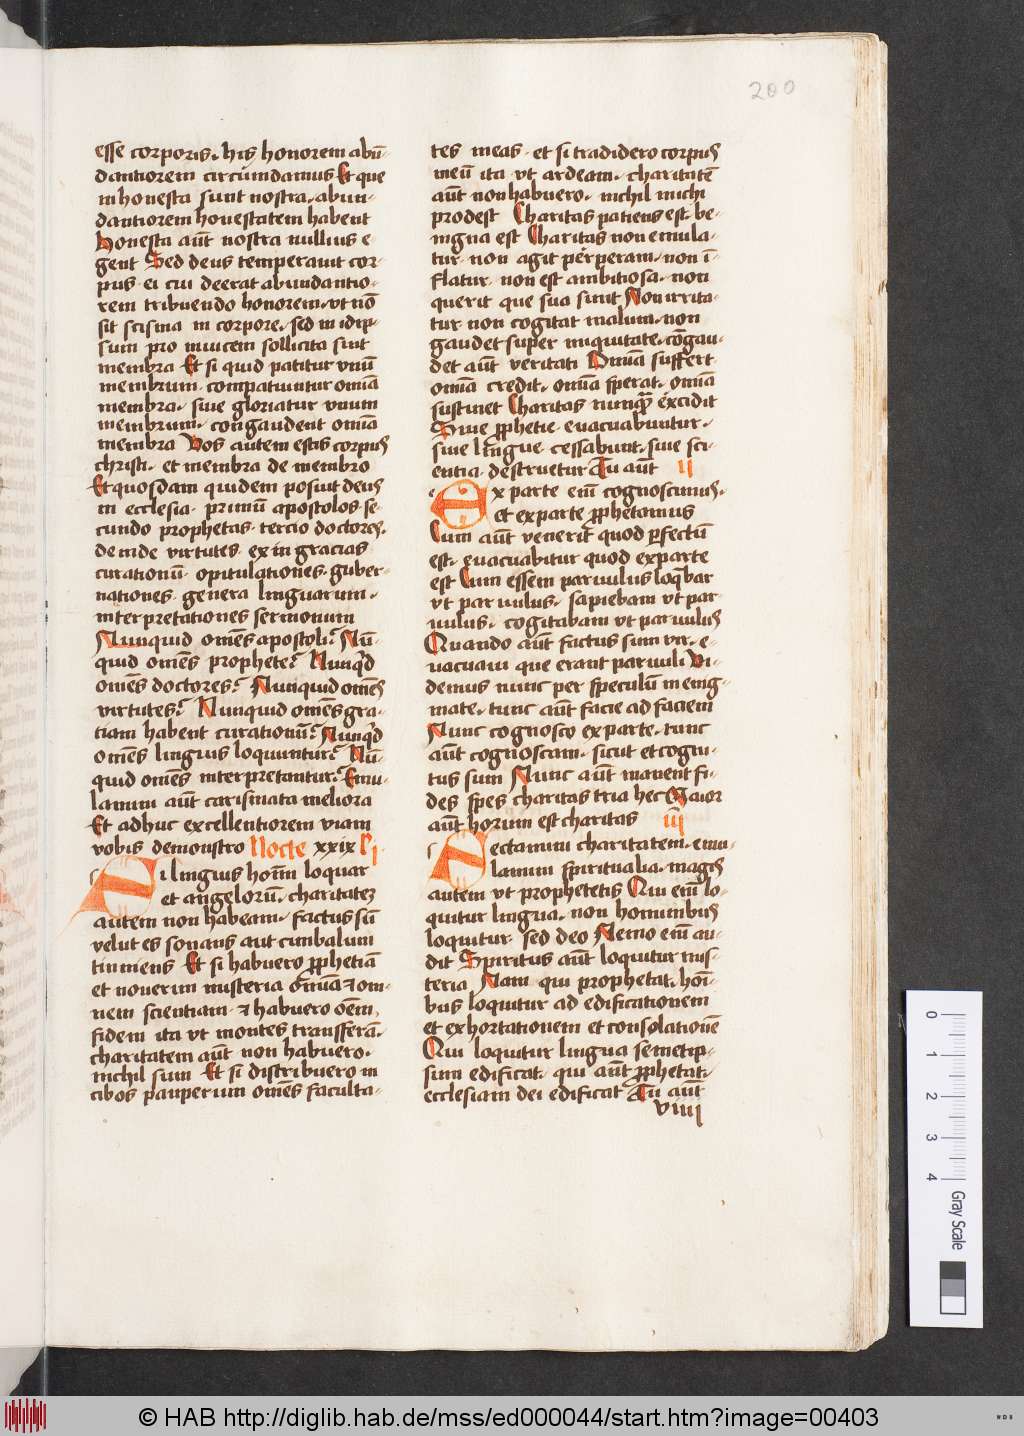 200
esse corporis. his honorem abū-
dantiorem circumdamus Et que
inhonesta sunt nostra. abun-
dantiorem honestatem habent
honesta aūt nostra nullius e-
gent Sed deus temperavit cor-
pus. ei cui deerat abundantio-
rem tribuendo honorem. ut nō
sit scisma in corpore. sed in idip-
sum pro invicem sollicita sint
membra Et si quid patitur unū
membrum. compatiuntur omīa
membra. sive gloriatur unum
membrum. congaudent omīa
membra Vos autem estis corpus
christi. et membra de membro
Et quosdam quidem posuit deus
in ecclesia. primū apostolos. se-
cundo prophetas. tercio doctores.
deinde virtutes. exin gracias
curationū. opitulationes. guber-
nationes. genera linguarum.
interpretationes sermonum
Nunquid omēs apostoli? Nū-
quid omēs prophete? Nunq̄d
omēs doctores? Nunquid omēs
virtutes? Nunquid omēs gra-
tiam habent curationū? Nunq̄d
omēs linguis loquuntur? Nū-
quid omēs interpretantur? Emu-
lamini aūt carismata meliora
Et adhuc excellentiorem viam
vobis demonstro Nocte xxix P i
Si linguis homīm loquar
et angelorū. charitatez
autem non habeam. factus sū
velut es sonans aut cimbalum
tinniens Et si habuero pphetiā
et noverim misteria omīa et om-
nem scientiam. et habuero oēm
fidem ita ut montes transferā.
charitatem aūt non habuero.
nichil sum Et si distribuero in
cibos pauperum omēs faculta-
tes meas. et si tradidero corpus
meū ita ut ardeam. charitatē
aūt non habuero. nichil michi
prodest Charitas patiens est. be-
nigna est Charitas non emula-
tur. non agit perperam. non ī-
flatur. non est ambitiosa. non
querit que sua sunt Non irrita-
tur. non cogitat malum. non
gaudet super iniquitate. cōgau-
det aūt veritati Omīa suffert
omīa credit. omīa sperat. omīa
sustinet Charitas nunquā excidit
Sive pphetie evacuabuntur.
sive lingue cessabunt. sive sci-
entia destruetur Tu aūt ii
Ex parte eīm cognoscimus.
et ex parte pphetamus
Cum aūt venerit quod pfectū
est. evacuabitur quod ex parte
est Cum essem parvulus loqbar
ut parvulus. sapiebam ut par-
vulus. cogitabam ut parvulus
Quando aūt factus sum vir. e-
vacuavi que erant parvuli Vi-
demus nunc per speculū in enig-
mate. tunc aūt facie ad faciem
Nunc cognosco ex parte. tunc
aūt cognoscam. sicut et cogni-
tus sum Nunc aūt manent fi-
des spes charitas tria hec Maior
aūt horum est charitas iii
Sectamini charitatem. emu-
lamini spiritualia. magis
autem ut prophetetis Qui eīm lo-
quitur lingua. non hominibus
loquitur. sed deo Nemo eīm au-
dit Spiritus aūt loquitur mis-
teria Nam qui prophetat. homī-
bus loquitur ad edificationem
et exhortationem et consolationē
Qui loquitur lingua semetip-
sum edificat. qui aūt pphetat.
ecclesiam dei edificat Tu aūt
viiii
0 1 2 3 4 Gray Scale
© HAB http://diglib.hab.de/mss/ed000044/start.htm?image=00403